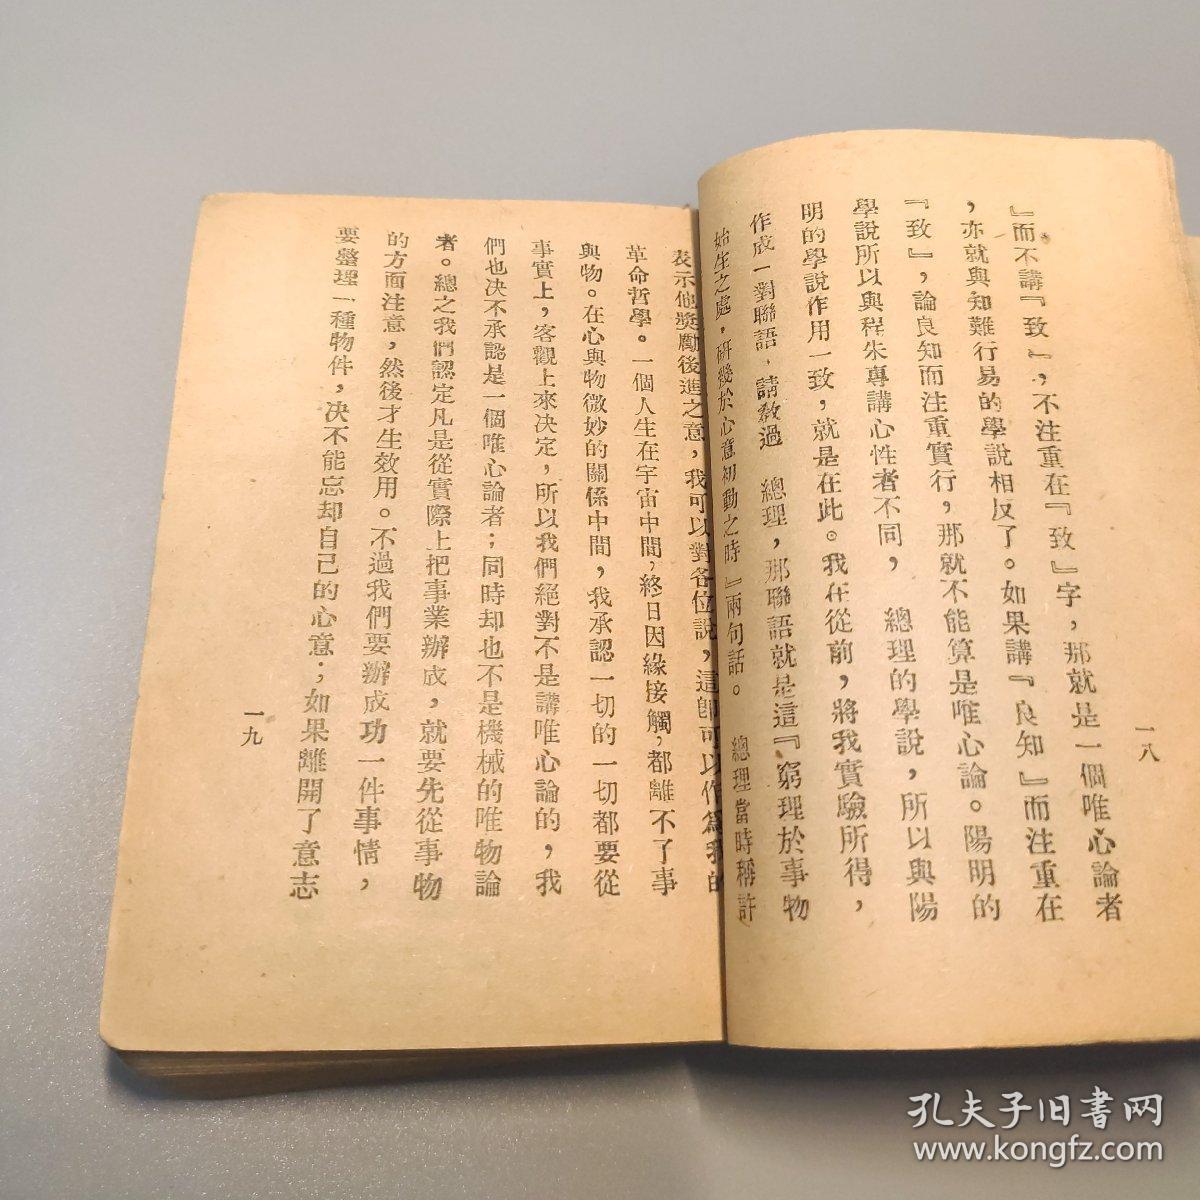 一八
』而不講『致』,不注重在『致』字,那就是一個唯心論者
,亦就與知難行易的學說相反了。如果講『良知』而注重在
『致』,論良知而注重實行,那就不能算是唯心論。陽明的
學說所以與程朱專講心性者不同, 總理的學說,所以與陽
明的學說作用一致,就是在此。我在從前,將我實驗所得,
作成一對聯語,請教過 總理,那聯語就是這『窮理於事物
始生之處,研幾於心意初動之時』兩句話。 總理當時稱許
表示他獎勵後進之意,我可以對各位說,這即可以作為我的
革命哲學。一個人生在宇宙中間,終日因緣接觸,都離不了事
與物。在心與物微妙的關係中間,我承認一切的一切都要從
事實上,客觀上來決定,所以我們絕對不是講唯心論的,我
們也決不承認是一個唯心論者;同時却也不是機械的唯物論
者。總之我們認定凡是從實際上把事業辦成,就要先從事物
的方面注意,然後才生效用。不過我們要辦成功一件事情,
要整理一種物件,決不能忘却自己的心意;如果離開了意志
一九
孔夫子旧书网
www.kongfz.com